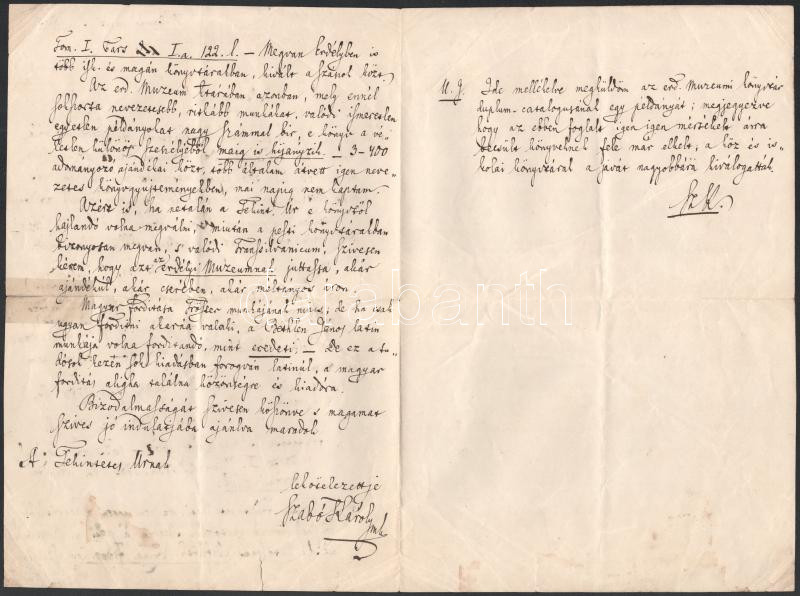 Tom. I. Pars I.a. 122. l. — Megvan Erdélyben is
több isk. és magán könyvtárakban, kivált a szászok közt.
Az erd. Muzeum tárában azonban, mely ennél
sokszorta nevezetesebb, ritkább munkákat, valódi ismeretlen
egyetlen példányokat nagy számmal bir, e könyv a vé-
letlen különös szeszélyéből maig is hiányzik. — 3-400
adományozó ajándékai közt, több általam átvett igen neve-
zetes könyvgyüjteményekben, mai napig nem kaptam.
Azért is, ha netalán a Tekint. Úr e könyvtől
hajlandó volna megválni, miután a pesti könyvtárakban
bizonyosan megvan, s valódi Transsilvanicum, szivesen
kérem, hogy azt az erdélyi Muzeumnak juttassa, akár
ajándékul, akár cserében, akár méltányos áron.
Magyar forditása Tröster munkájának nincs; de ha csak
ugyan forditni akarna valaki, a Bethlen János latin
munkája volna forditandó, mint eredeti; — de ez a tu-
dósok kezén sok kiadásban forogván latinúl, a magyar
forditás aligha találna közönségre és kiadóra.
Bizodalmasságát szivesen köszönve s magamat
szives jó indulatjába ajánlva maradok
A Tekintetes Urnak
lekötelezettje
Szabó Károly mk
U. I. Ide mellékelve megküldöm az erd. Muzeumi könyvtár
duplum-catalogusának egy példányát; megjegyezve
hogy az ebben foglalt igen igen mérsékelt árra
becsült könyveknek fele már elkelt; a köz és is-
kolai könyvtárak a javát nagyobbára kiválogatták.
Sz K.
darabanth